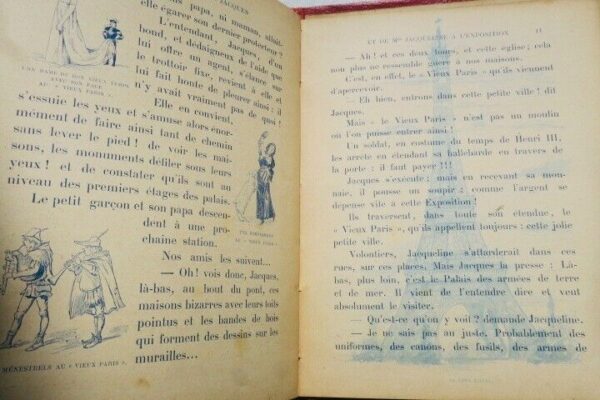 JACQUES
papa, ni maman, allait-
elle égarer son dernier protecteur!
L'entendant, Jacques, d'un
bond, et dédaigneux de l'aide que
lui offre un agent, s'élance sur
le trottoir fixe, revient à elle et
lui fait honte de pleurer ainsi : il
n'y avait vraiment pas de quoi!
Elle en convient,
s'essuie les yeux et s'amuse alors énor-
mément de faire ainsi tant de chemin
sans lever le pied! de voir les mai-
sons, les monuments défiler sous leurs
yeux! et de constater qu'ils sont au
niveau des premiers étages des palais.
UNE DAME DU BON VIEUX TEMPS
AVEC SON PAGE
AU « VIEUX PARIS ».
AU « VIEUX PARIS ».
Le petit garçon et son papa descen-
dent à une pro-
chaine station.
Nos amis les suivent...
— Oh! vois donc, Jacques,
là-bas, au bout du pont, ces
maisons bizarres avec leurs toits
pointus et les bandes de bois
qui forment des dessins sur les
murailles...
MÉNESTRELS AU « VIEUX PARIS ».
ET DE Mlle JACQUELINE A L'EXPOSITION 11
— Ah! et ces deux tours, et cette église; cela
non plus ne ressemble guère à nos maisons.
C'est, en effet, le « Vieux Paris » qu'ils viennent
d'apercevoir.
— Eh bien, entrons dans cette petite ville! dit
Jacques.
Mais « le Vieux Paris » n'est pas un moulin
où l'on puisse entrer ainsi!
Un soldat, en costume du temps de Henri III,
les arrête en étendant sa hallebarde en travers de
la porte : il faut payer!!!
Jacques s'exécute; mais en recevant sa mon-
naie, il pousse un soupir : comme l'argent se
dépense vite à cette Exposition!
Ils traversent, dans toute son étendue, le
« Vieux Paris », qu'ils appellent toujours : cette jolie
petite ville.
Volontiers, Jacqueline s'attarderait dans ces
rues, sur ces places. Mais Jacques la presse : Là-
bas, plus loin, c'est le Palais des armées de terre
et de mer. Il vient de l'entendre dire et veut
absolument le visiter.
— Qu'est-ce qu'on y voit? demande Jacqueline.
— Je ne sais pas au juste. Probablement des
uniformes, des canons, des fusils, des armes de